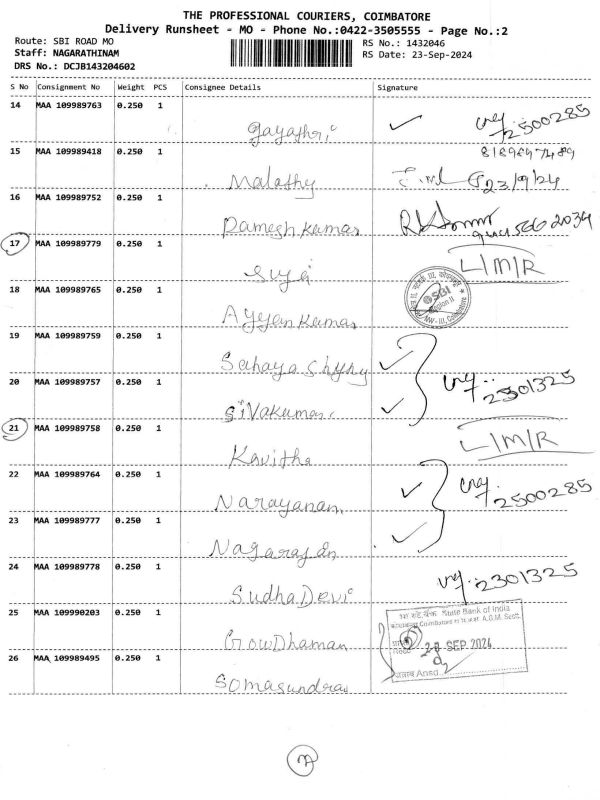 THE PROFESSIONAL COURIERS, COIMBATORE
Delivery Runsheet - MO - Phone No.:0422-3505555 - Page No.:2
Route: SBI ROAD MO RS No.: 1432046
Staff: NAGARATHINAM RS Date: 23-Sep-2024
DRS No.: DCJB143204602
S No Consignment No Weight PCS Consignee Details Signature
14 MAA 109989763 0.250 1
Gayathri 2500285
15 MAA 109989418 0.250 1
Malathy 23/9/24
16 MAA 109989752 0.250 1
Ramesh Kumar
17 MAA 109989779 0.250 1
Suja L/M/R
18 MAA 109989765 0.250 1
SBI
Ayyan Kumar
19 MAA 109989759 0.250 1
Sahaya Shyny
20 MAA 109989757 0.250 1 2301325
Sivakumar
21 MAA 109989758 0.250 1
Kavitha L/M/R
22 MAA 109989764 0.250 1
Narayanan 2500285
23 MAA 109989777 0.250 1
Nagarajan
24 MAA 109989778 0.250 1 2301325
Sudha Devi
25 MAA 109990203 0.250 1 State Bank of India
GowDhaman SEP 2024
26 MAA 109989495 0.250 1
Somasundra